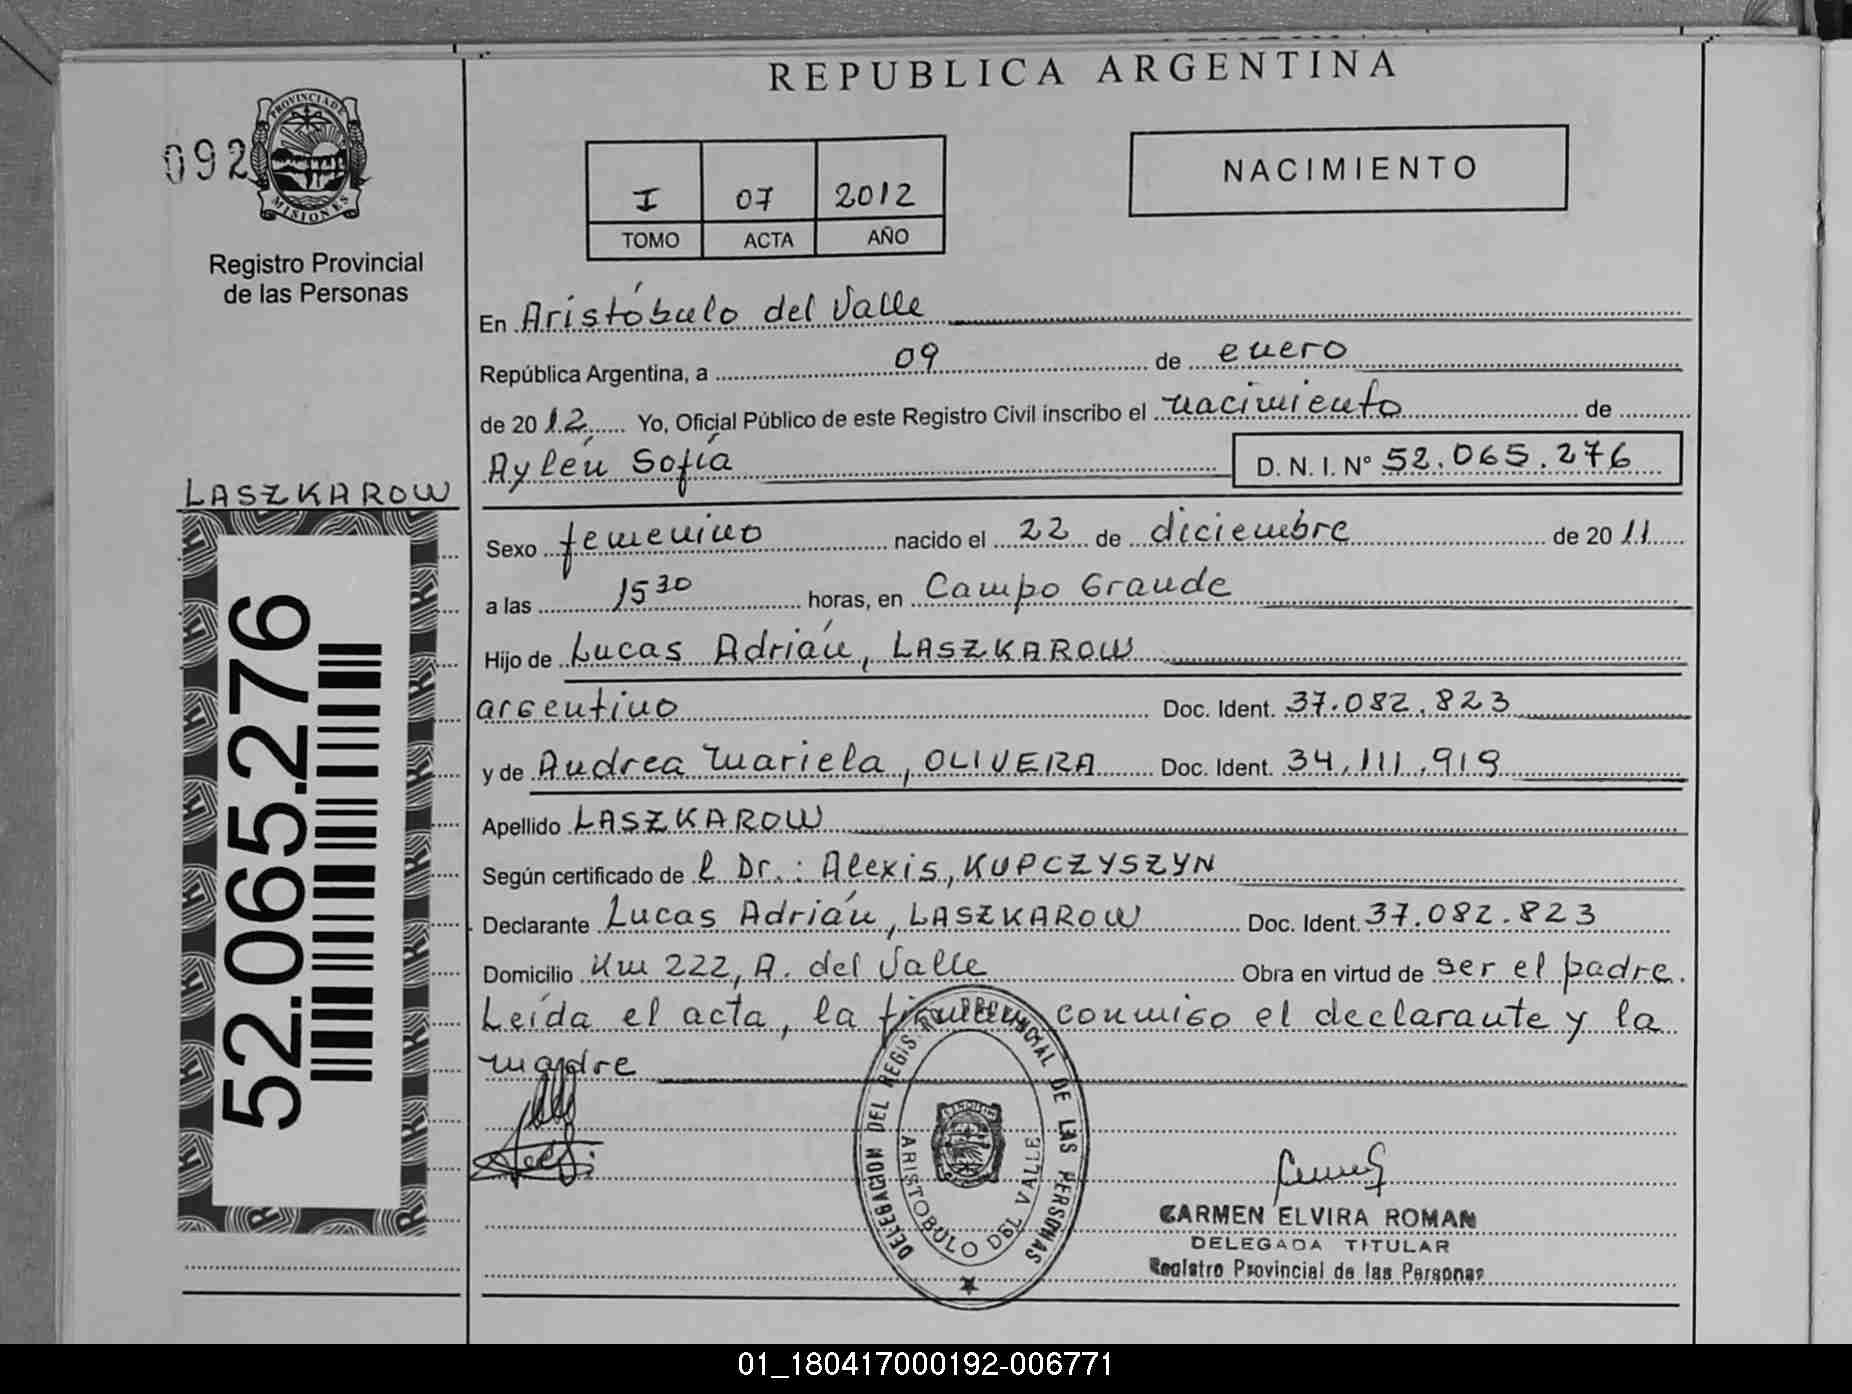 REPUBLICA ARGENTINA
092
PROVINCIA DE
MISIONES
Registro Provincial
de las Personas
I 07 2012
TOMO ACTA AÑO
NACIMIENTO
En Aristóbulo del Valle
República Argentina, a 09 de enero
de 2012 Yo, Oficial Público de este Registro Civil inscribo el nacimiento de
Aylén Sofía D. N. I. Nº 52.065.276
LASZKAROW
52.065.276
Sexo femenino nacido el 22 de diciembre de 2011
a las 15 30 horas, en Campo Grande
Hijo de Lucas Adrián, LASZKAROW
argentino Doc. Ident. 37.082.823
y de Andrea Mariela, OLIVERA Doc. Ident. 34.111.919
Apellido LASZKAROW
Según certificado de l Dr.: Alexis, KUPCZYSZYN
Declarante Lucas Adrián, LASZKAROW Doc. Ident. 37.082.823
Domicilio Km 222, A. del Valle Obra en virtud de ser el padre.
Leída el acta, la firman conmigo el declarante y la
madre
DELEGACION DEL REGISTRO PROVINCIAL DE LAS PERSONAS
ARISTOBULO DEL VALLE
CARMEN ELVIRA ROMAN
DELEGADA TITULAR
Registro Provincial de las Personas
01_180417000192-006771